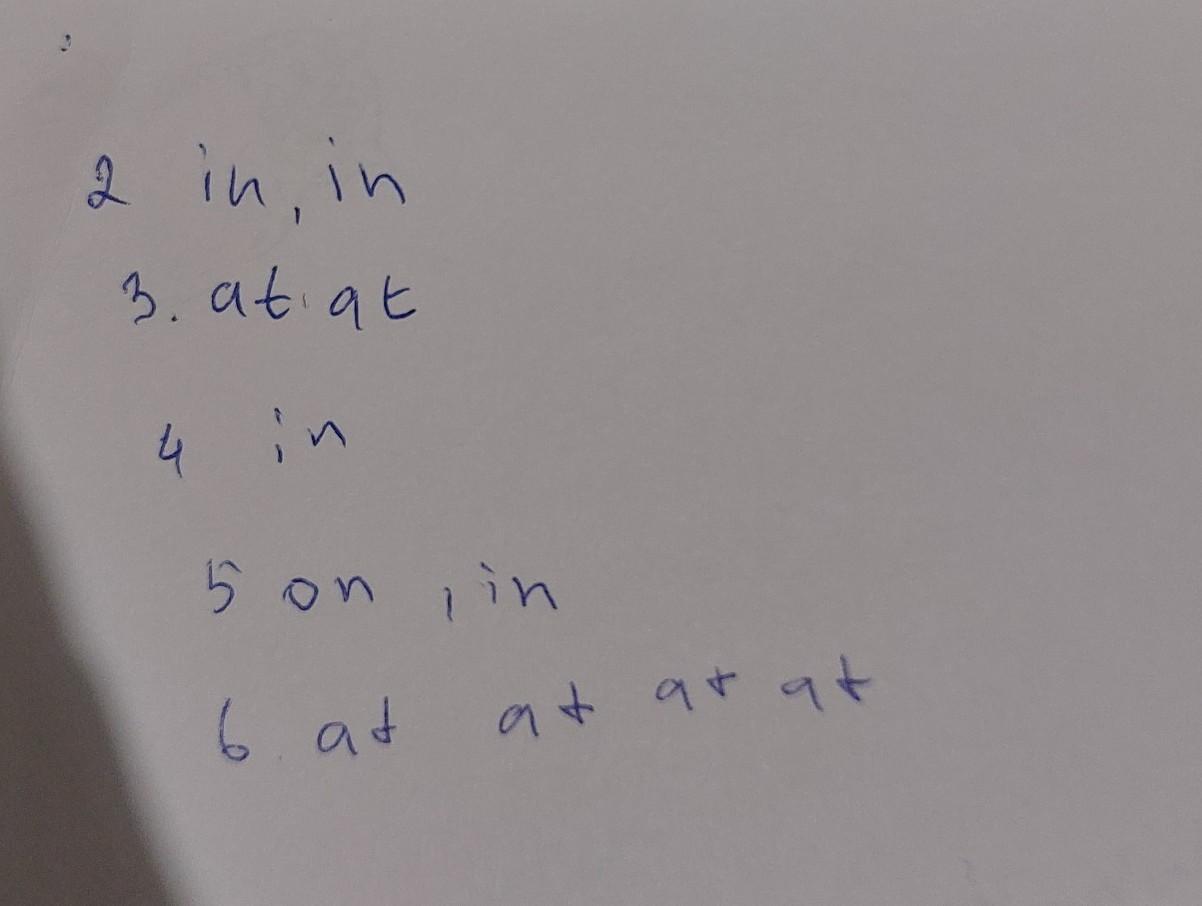 2 in, in
3. at, at
4 in
5 on, in
6. at at at at